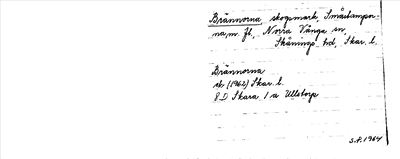 Brännorna skogsmark, Småstampor-
na, m. fl., Norra Vånga sn,
Skånings hd, Skar. l.
Brännorna
ek (1962) Skar. l.
8D Skara 1 a Ullstorp
S.F. 1964